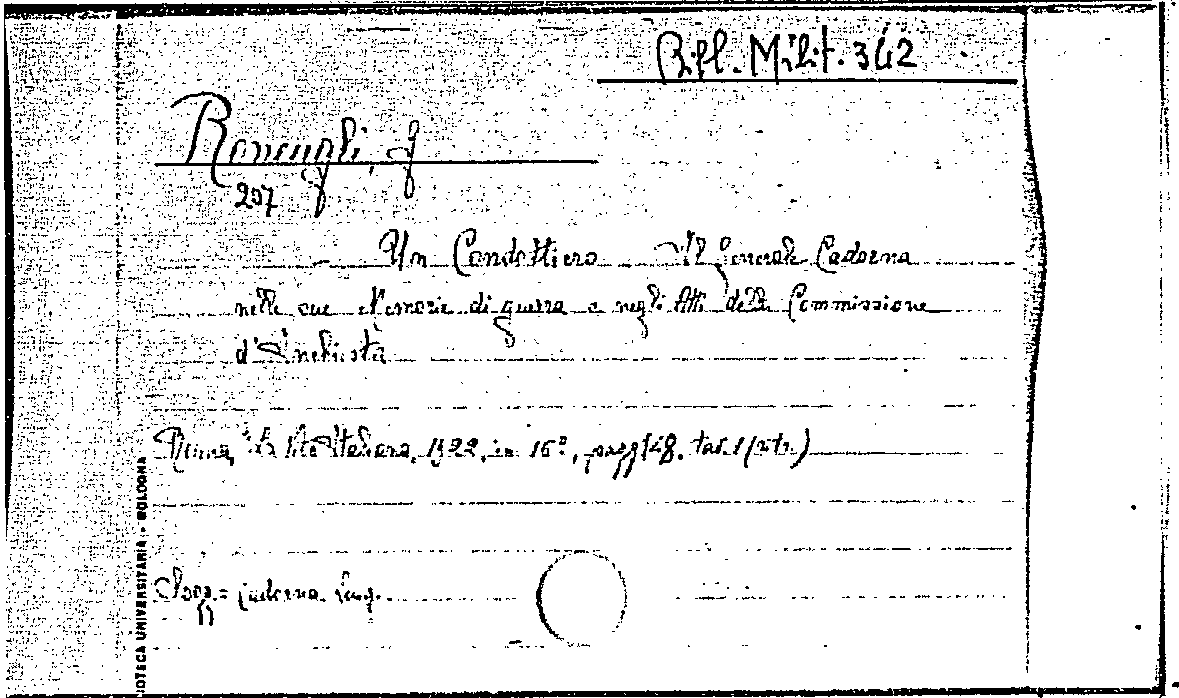 Bibl. Milit. 342
Roncagli, G
207
Un Condottiero Il Generale Cadorna
nelle sue Memorie di guerra e negli Atti della Commissione
d'Inchiesta
Roma, La Vita Italiana, 1922, in 16°, pagg 148. tav. 1 (ritr.)
Sogg.= Cadorna Luig.
IOTECA UNIVERSITARIA - BOLOGNA